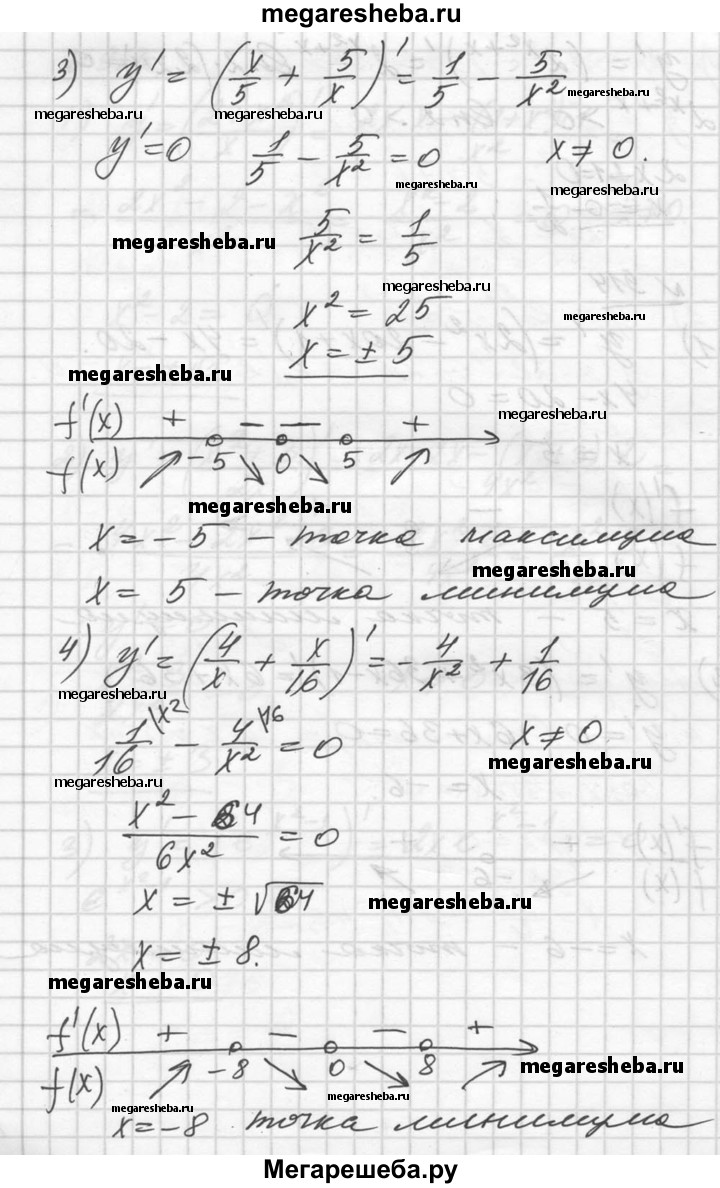 megaresheba.ru
3) y' = (x/5 + 5/x)' = 1/5 − 5/x²
megaresheba.ru megaresheba.ru megaresheba.ru
y'=0 1/5 − 5/x² = 0 x ≠ 0.
megaresheba.ru megaresheba.ru
5/x² = 1/5
megaresheba.ru
megaresheba.ru
x² = 25
megaresheba.ru
x = ± 5
megaresheba.ru
megaresheba.ru
f'(x) + − − +
f(x) ↗ −5 ↘ 0 ↘ 5 ↗
megaresheba.ru
x = − 5 − точка максимума
megaresheba.ru
x = 5 − точка минимума
4) y' = (4/x + x/16)' = − 4/x² + 1/16
megaresheba.ru
1/16 \x² − 4/x² \16 = 0 x ≠ 0
megaresheba.ru
megaresheba.ru
x² − 64 / 6x² = 0
x = ± √64
megaresheba.ru
x = ± 8.
megaresheba.ru
f'(x) + − − +
f(x) ↗ −8 ↘ 0 ↘ 8 ↗
megaresheba.ru
megaresheba.ru megaresheba.ru
x = −8 точка минимума
Мегарешеба.ру